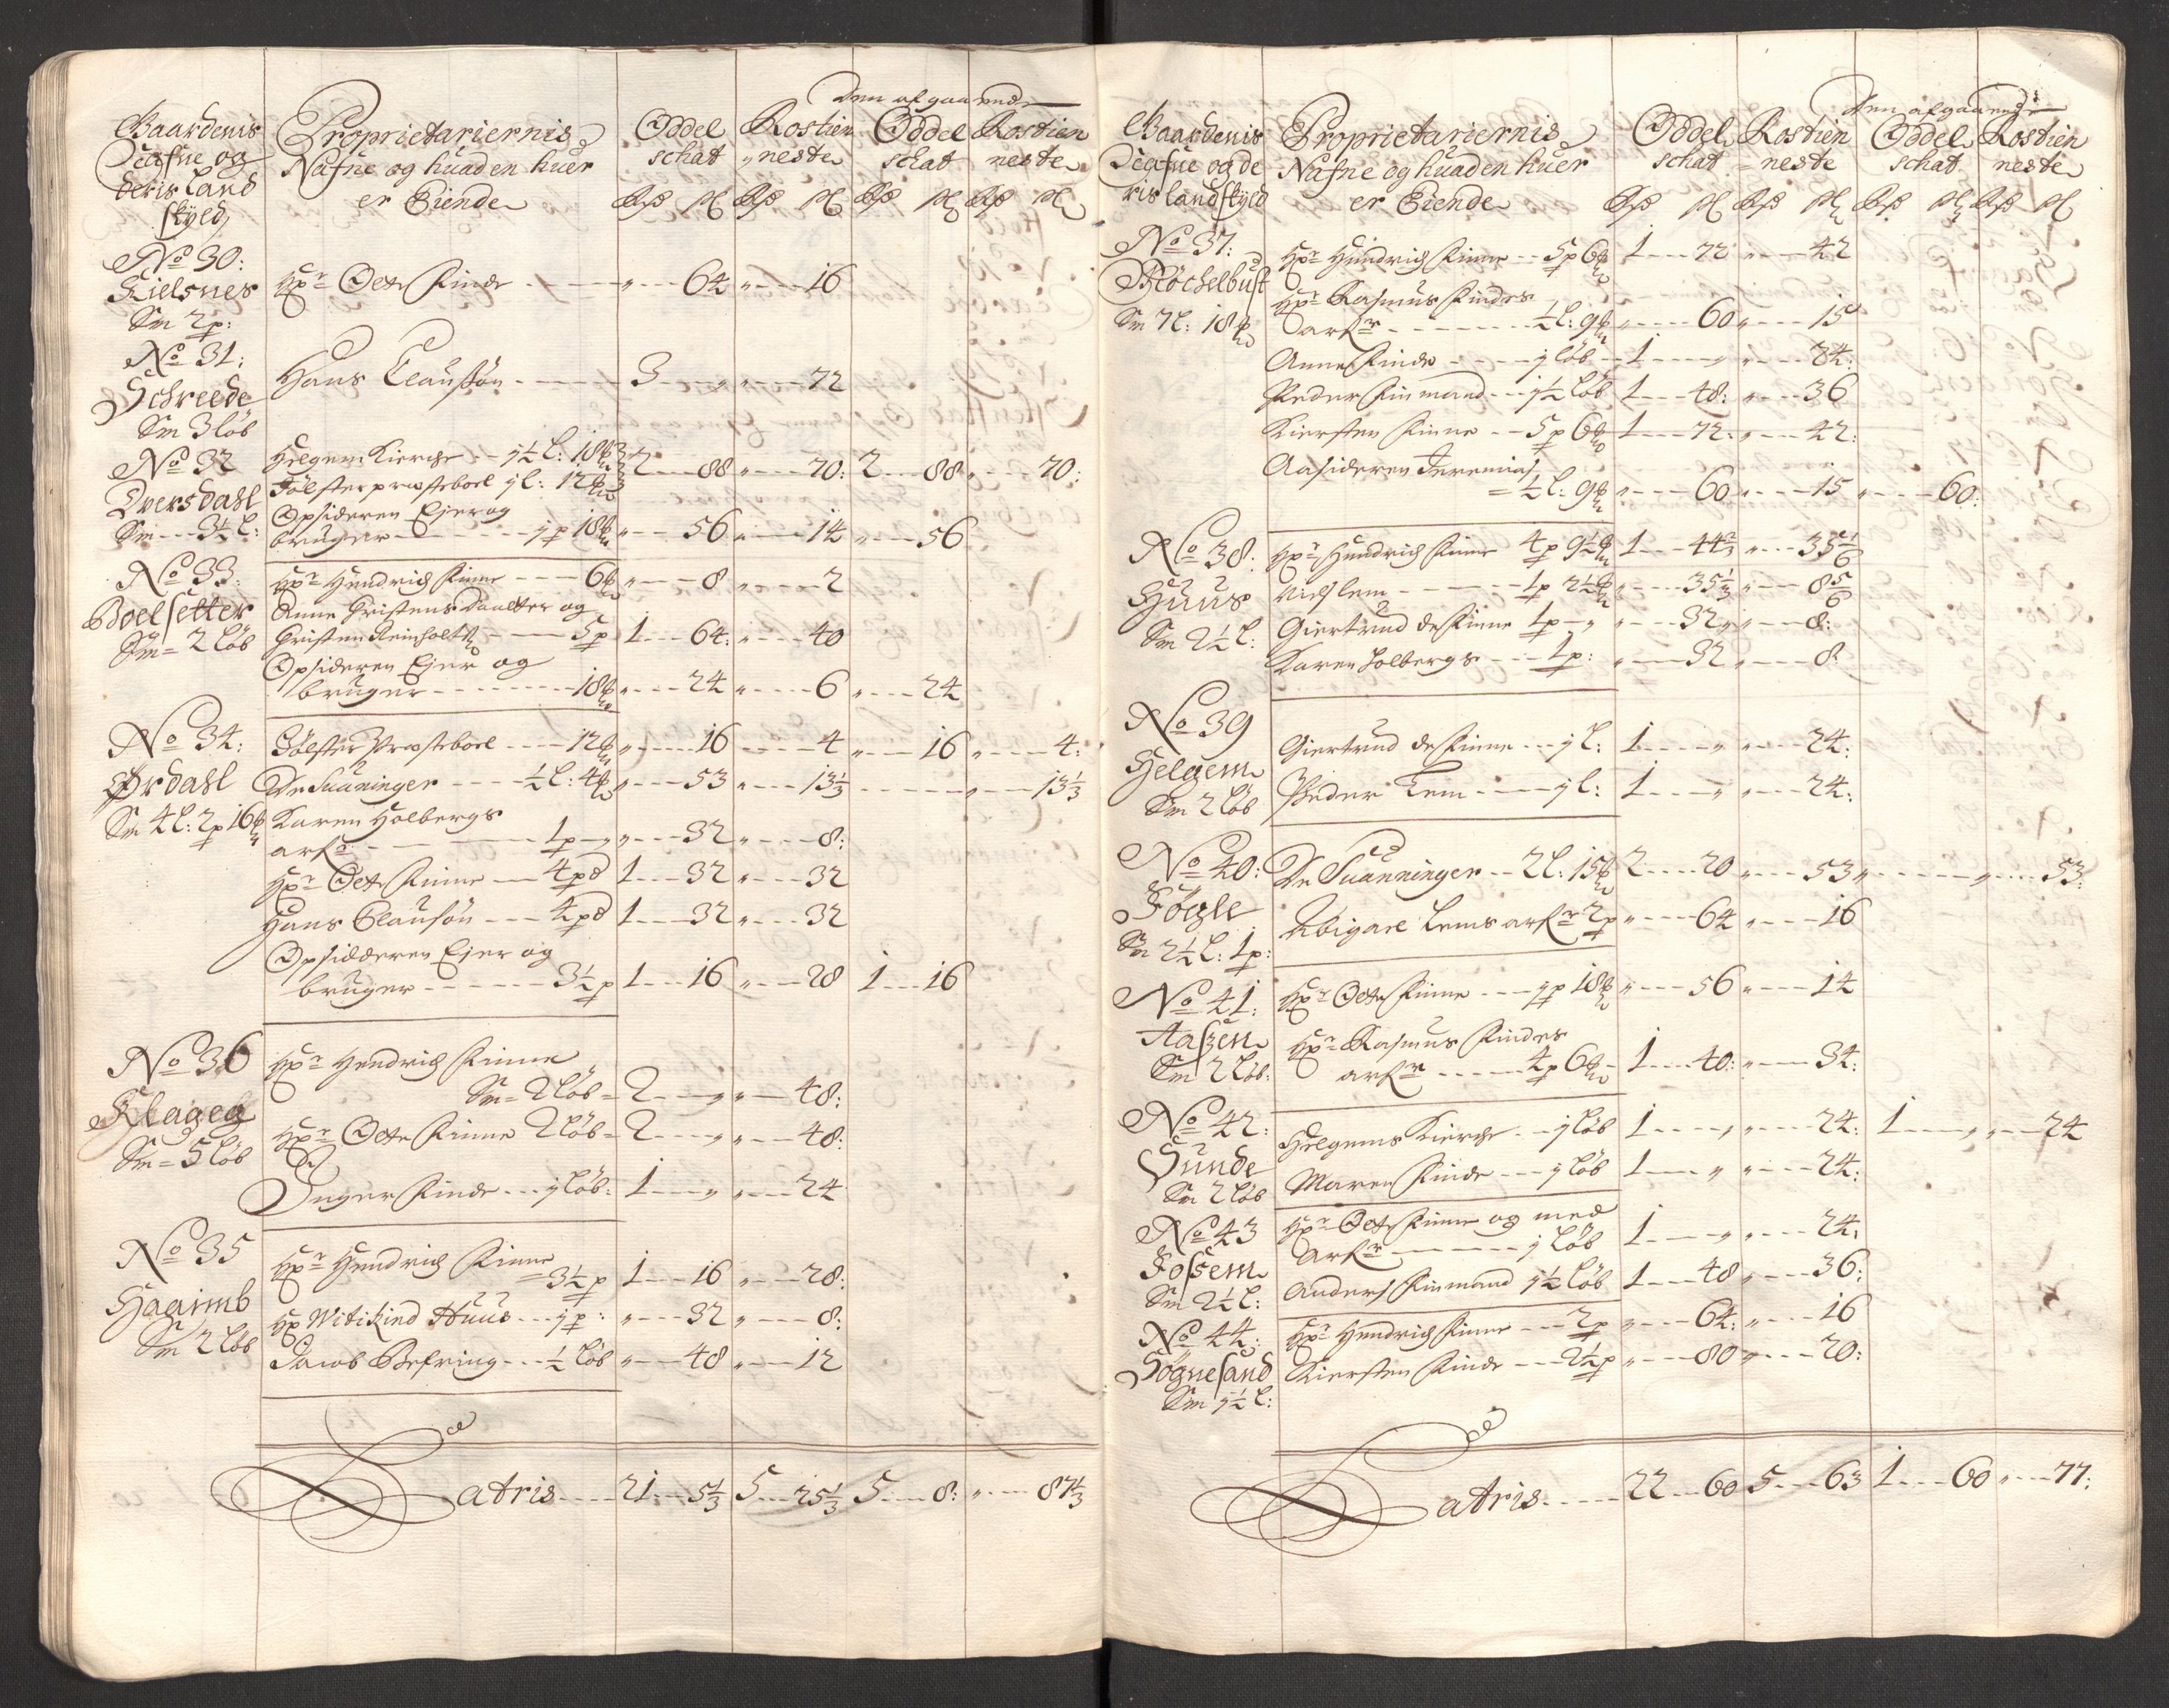 Den afgaaende
Gaardenis Nafne og deris Land skyld
Proprietariernis Nafne og huad en huer er Eiende
Oddel schat
Rostien neste
Oddel schat
Rostien neste
No 30:
Kielsnes
Sm 2 p:
Hr Ole Finde - - - " - - - 64 " - - - 16
No 31:
Schreede
Sm 3 løb
Hans Clausøn - - - 3 - - - " " - - - 72
No 32
Dversdahl
Sm - - 3½ l:
Helgem Kierche - - 1½ l: 18 2 - - 88 " - - - 70: 2 - - 88 " - - - 70:
Jølster præsteboel 1 l: 12
Opsideren Ejer og
bruger - - - 1 p 18 " - - - 56 " - - - 14 " - - - 56
No 33
Boelsetter
Sm = 2 løb
Hr Hendrich Finne - - - 6 " - - - 8 " - - - 2
Anne Cristens Daatter og
Cristen Reinholtt - - - 5 p 1 - - - 64: " - - - 40
Opsideren Ejer og
bruger - - - 18 " - - - 24 " - - - 6 " - - - 24
No 34:
Ordahl
Sm 4 l: 2 p 16
Jølster Præsteboel - - - 12 " - - - 16 - - - 4 " - - - 16 " - - - 4:
De Suaninger - - - ½ l: 4 " - - - 53 " - - - 13⅓ - - - " - - - 13⅓
Karen Holbergs
arfr - - - 1 p " - - - 32 " - - - 8:
Hr Ole Finne - - 4 pd 1 - - - 32 " - - - 32
Hans Clausøn - - - 4 pd 1 - - - 32 " - - - 32
Opsidderen Ejer og
bruger - - - 3½ p 1 - - - 16 " - - - 28 1 - - - 16
No 36
Klageg
Sm = 5 løb
Hr Hendrich Finne
Sm = 2 løb = 2 - - - " " - - - 48:
Hr Ole Finne 2 løb = 2 - - - " " - - - 48:
Inger Finde - - - 1 løb: 1 - - - " " - - - 24
No 35
Haaimb
Sm 2 løb
Hr Hendrich Finne
= 3½ p 1 - - - 16 " - - - 28:
Hr Witikind Huus - - - 1 p: " - - - 32 " - - - 8:
Jacob Befring - - - ½ løb " - - - 48 " - - - 12
Latris - - - 21 - - 5⅓ 5 - - 25⅓ 5 - - 8: " - - - 87⅓
Den afgaaende
Gaardenis Nafne og deris landskyld
Proprietariernis Nafne og huad en huer er Eiende
Oddel schat
Rostien neste
Oddel schat
Rostien neste
No 37:
Bløchelbust
Sm 7 l: 18
Hr Hendrich Finne - - 5 p 6 1 - - - 72 " - - - 42
Hr Rasmus Findes
arfr - - - ½ l: 9 " - - - 60 " - - - 15
Anne Finde - - - 1 løb - 1 - - - " " - - - 24:
Peder Finmand - - 1½ løb 1 - - - 48: " - - - 36
Kiersten Finne - - 5 p 6 1 - - - 72: " - - - 42:
Aasideren Jeremias
= ½ l: 9 " - - - 60 " - - - 15 " - - - 60:
No 38:
Huus
Sm 2½ l:
Hr Hendrich Finne 4 p 9½ 1 - - - 44⅔ " - - - 35⅙
Niels lem - - - 1 p 2½ " - - - 35⅓ " - - - 8⅚
Giertrud de Finne 1 p - " " - - - 32 " " - - - 8:
Karen Holbergs - - - 1 p: " - - - 32 " - - - 8:
No 39
Helgem
Sm 2 løb
Giertrud de Finne - - - 1 l: 1 - - - " " - - - 24:
Peder Lem - - - 1 l: 1 - - - " " - - - 24:
No 40:
Føgle
Sm 2½ l: 1 p:
De Suanninger - - 2 l: 15 2 - - - 20 " - - - 53 " - - - " - - - 53:
Abigael Lems arfr 2 p " - - - 64 " - - - 16
No 41:
Aasen
Sm 2 løb:
Hr Ole Finne - - - 1 p 18 " - - - 56 " - - - 14
Hr Rasmus Findes
arfr - - - 4 p 6 - 1 - - - 40: " - - - 34:
No 42:
Sunde
Sm 2 løb
Helgems Kierche - - 1 løb 1 - - - " " - - - 24: 1 - - - " " - - - 24
Maren Finde - - - 1 løb 1 - - - " " - - - 24:
No 43
Fossem
Sm 2½ l:
Hr Ole Finne og med
arfr - - - 1 løb 1 - - - " " - - - 24:
Anders Finmand 1½ løb 1 - - - 48 " - - - 36:
No 44:
Søgnesand
Sm 1½ l:
Hr Hendrich Finne - - - 2 p " - - - 64: " - - - 16
Kiersten Finde - - - 2½ p " - - - 80 " - - - 20:
Latris - - - 22 - - 60 5 - - - 63 1 - - - 60 " - - - 77: